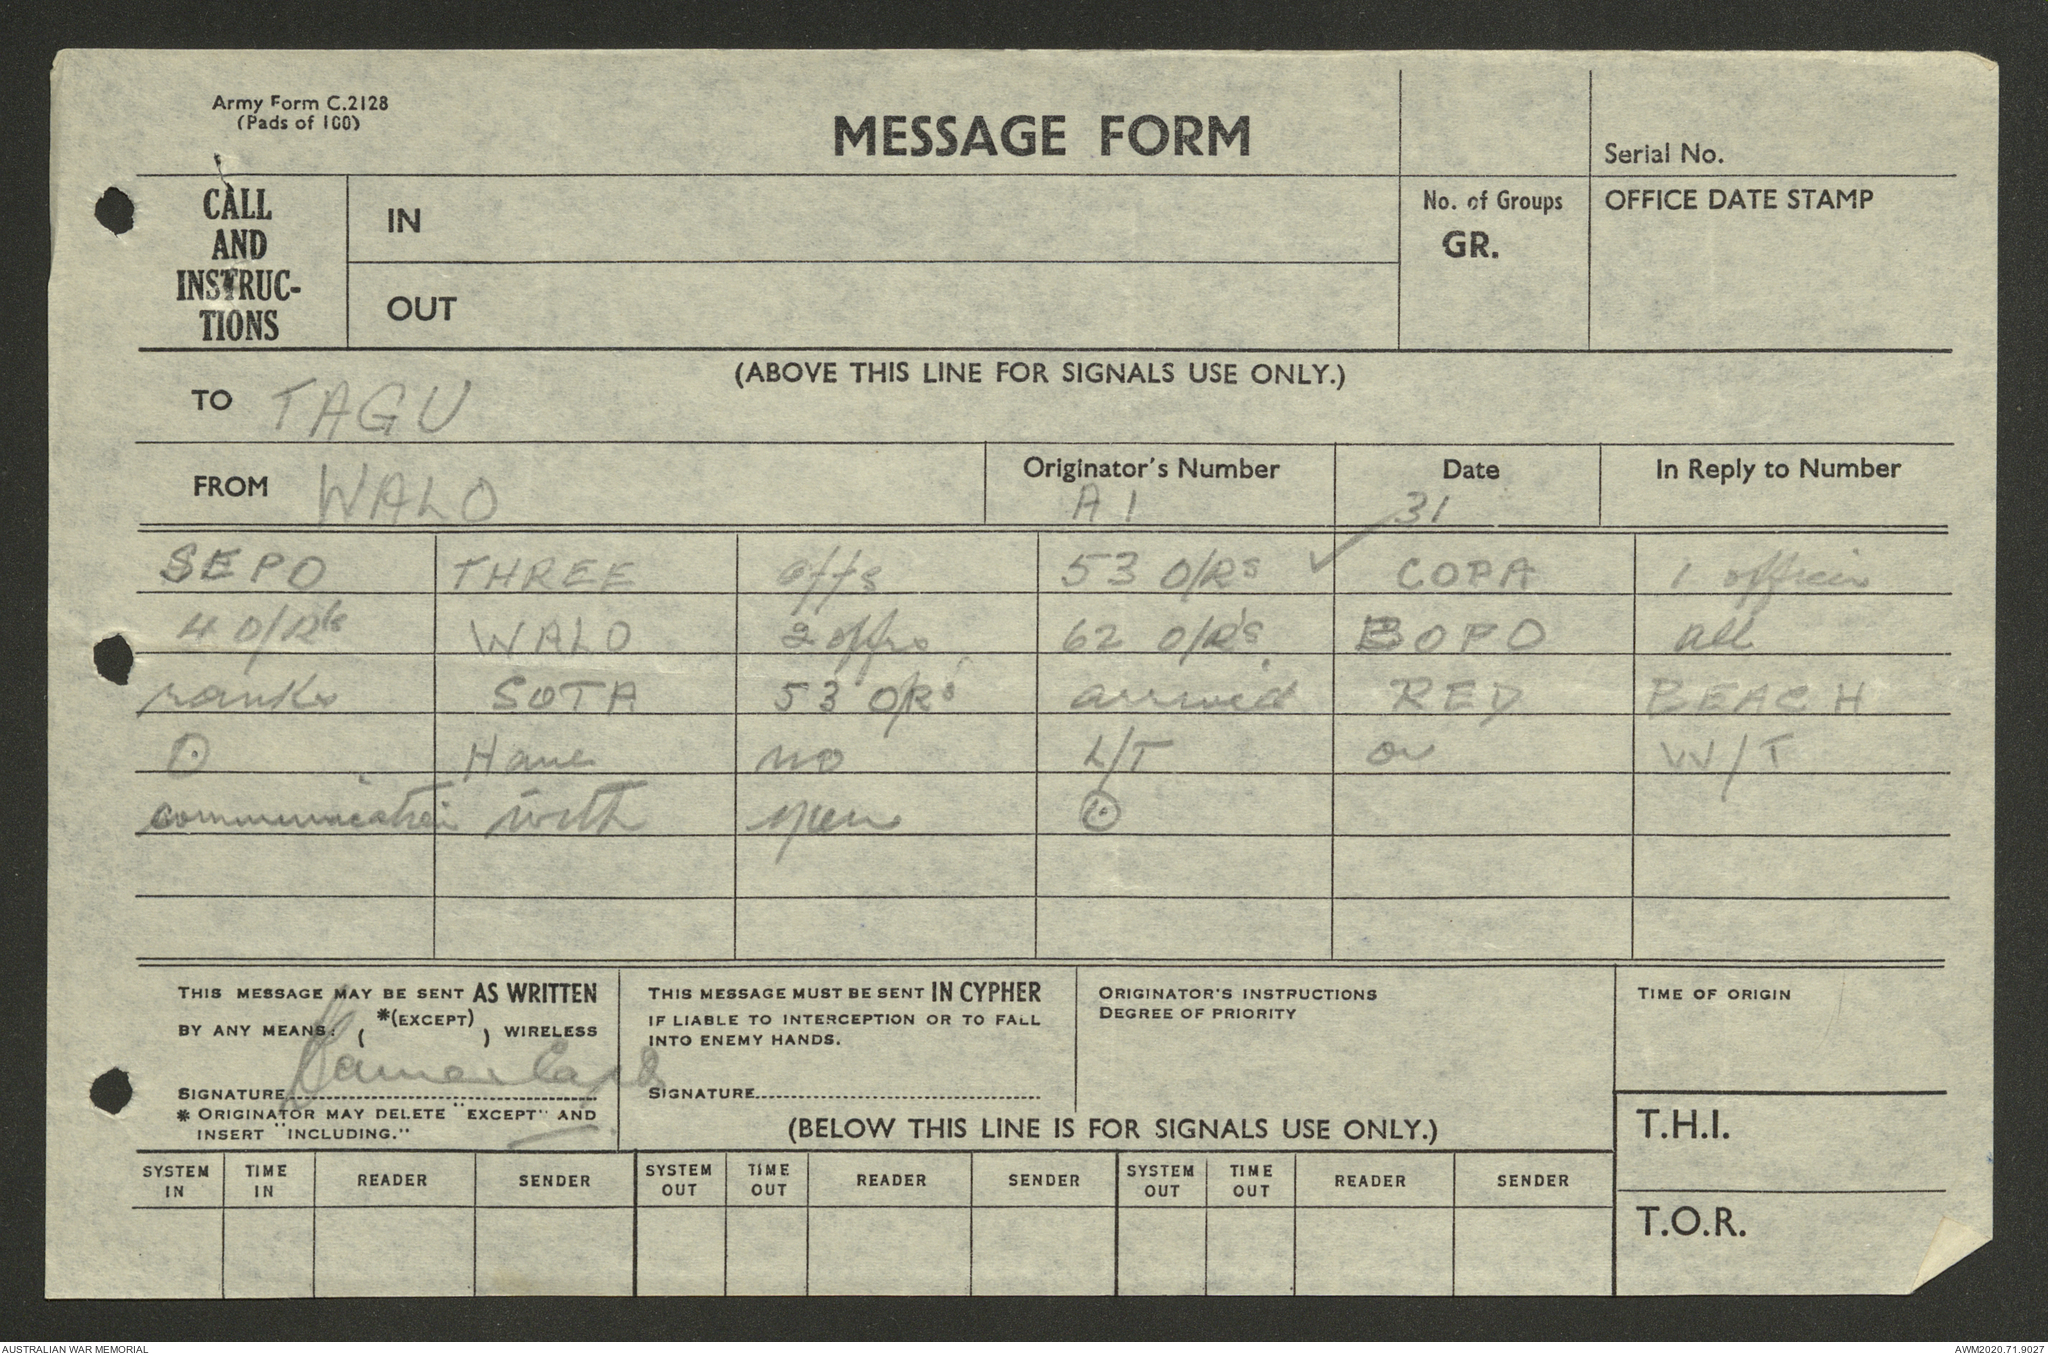 Army Form C.2128
(Pads of 100)
MESSAGE FORM
Serial No.
CALL
AND
INSTRUC-
TIONS
IN
OUT
No. of Groups
GR.
OFFICE DATE STAMP
(ABOVE THIS LINE FOR SIGNALS USE ONLY.)
TO TAGU
FROM WALO
Originator's Number
A 1
Date
31
In Reply to Number
SEPO THREE offs 53 O/Rs ✓ COPA 1 officer
4 O/R's WALO 2 offrs 62 O/R's. BOPO all
ranks SOTA 53 O/Rs arrived RED BEACH
⊙ Have no L/T or W/T
communication with ⊙
THIS MESSAGE MAY BE SENT AS WRITTEN
BY ANY MEANS: ( *(EXCEPT) ) WIRELESS
SIGNATURE Capt
* ORIGINATOR MAY DELETE "EXCEPT" AND
INSERT "INCLUDING."
THIS MESSAGE MUST BE SENT IN CYPHER
IF LIABLE TO INTERCEPTION OR TO FALL
INTO ENEMY HANDS.
SIGNATURE
ORIGINATOR'S INSTRUCTIONS
DEGREE OF PRIORITY
TIME OF ORIGIN
(BELOW THIS LINE IS FOR SIGNALS USE ONLY.)
T.H.I.
T.O.R.
SYSTEM IN TIME IN READER SENDER SYSTEM OUT TIME OUT READER SENDER SYSTEM OUT TIME OUT READER SENDER
AUSTRALIAN WAR MEMORIAL
AWM2020.71.9027